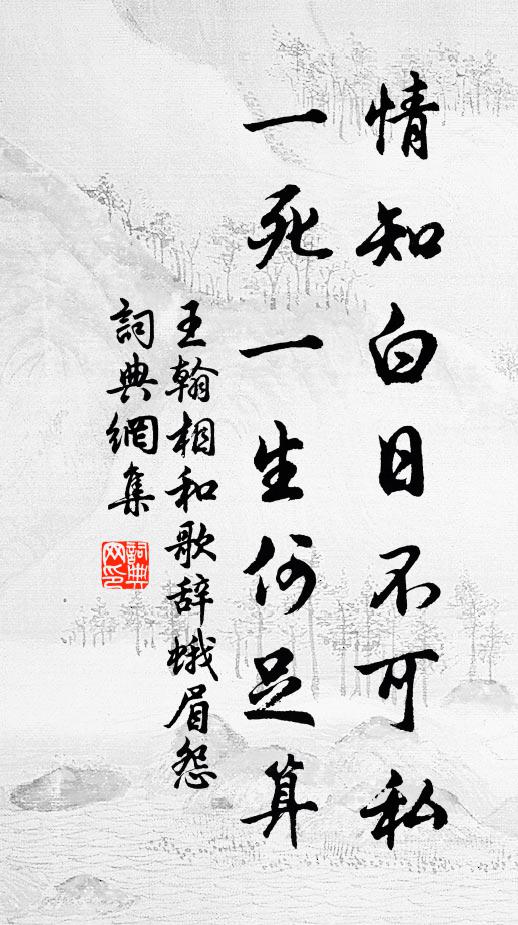 情知白日不可私
一死一生何足算
王翰相和歌辞蛾眉怨
詞典網集
詞典網印